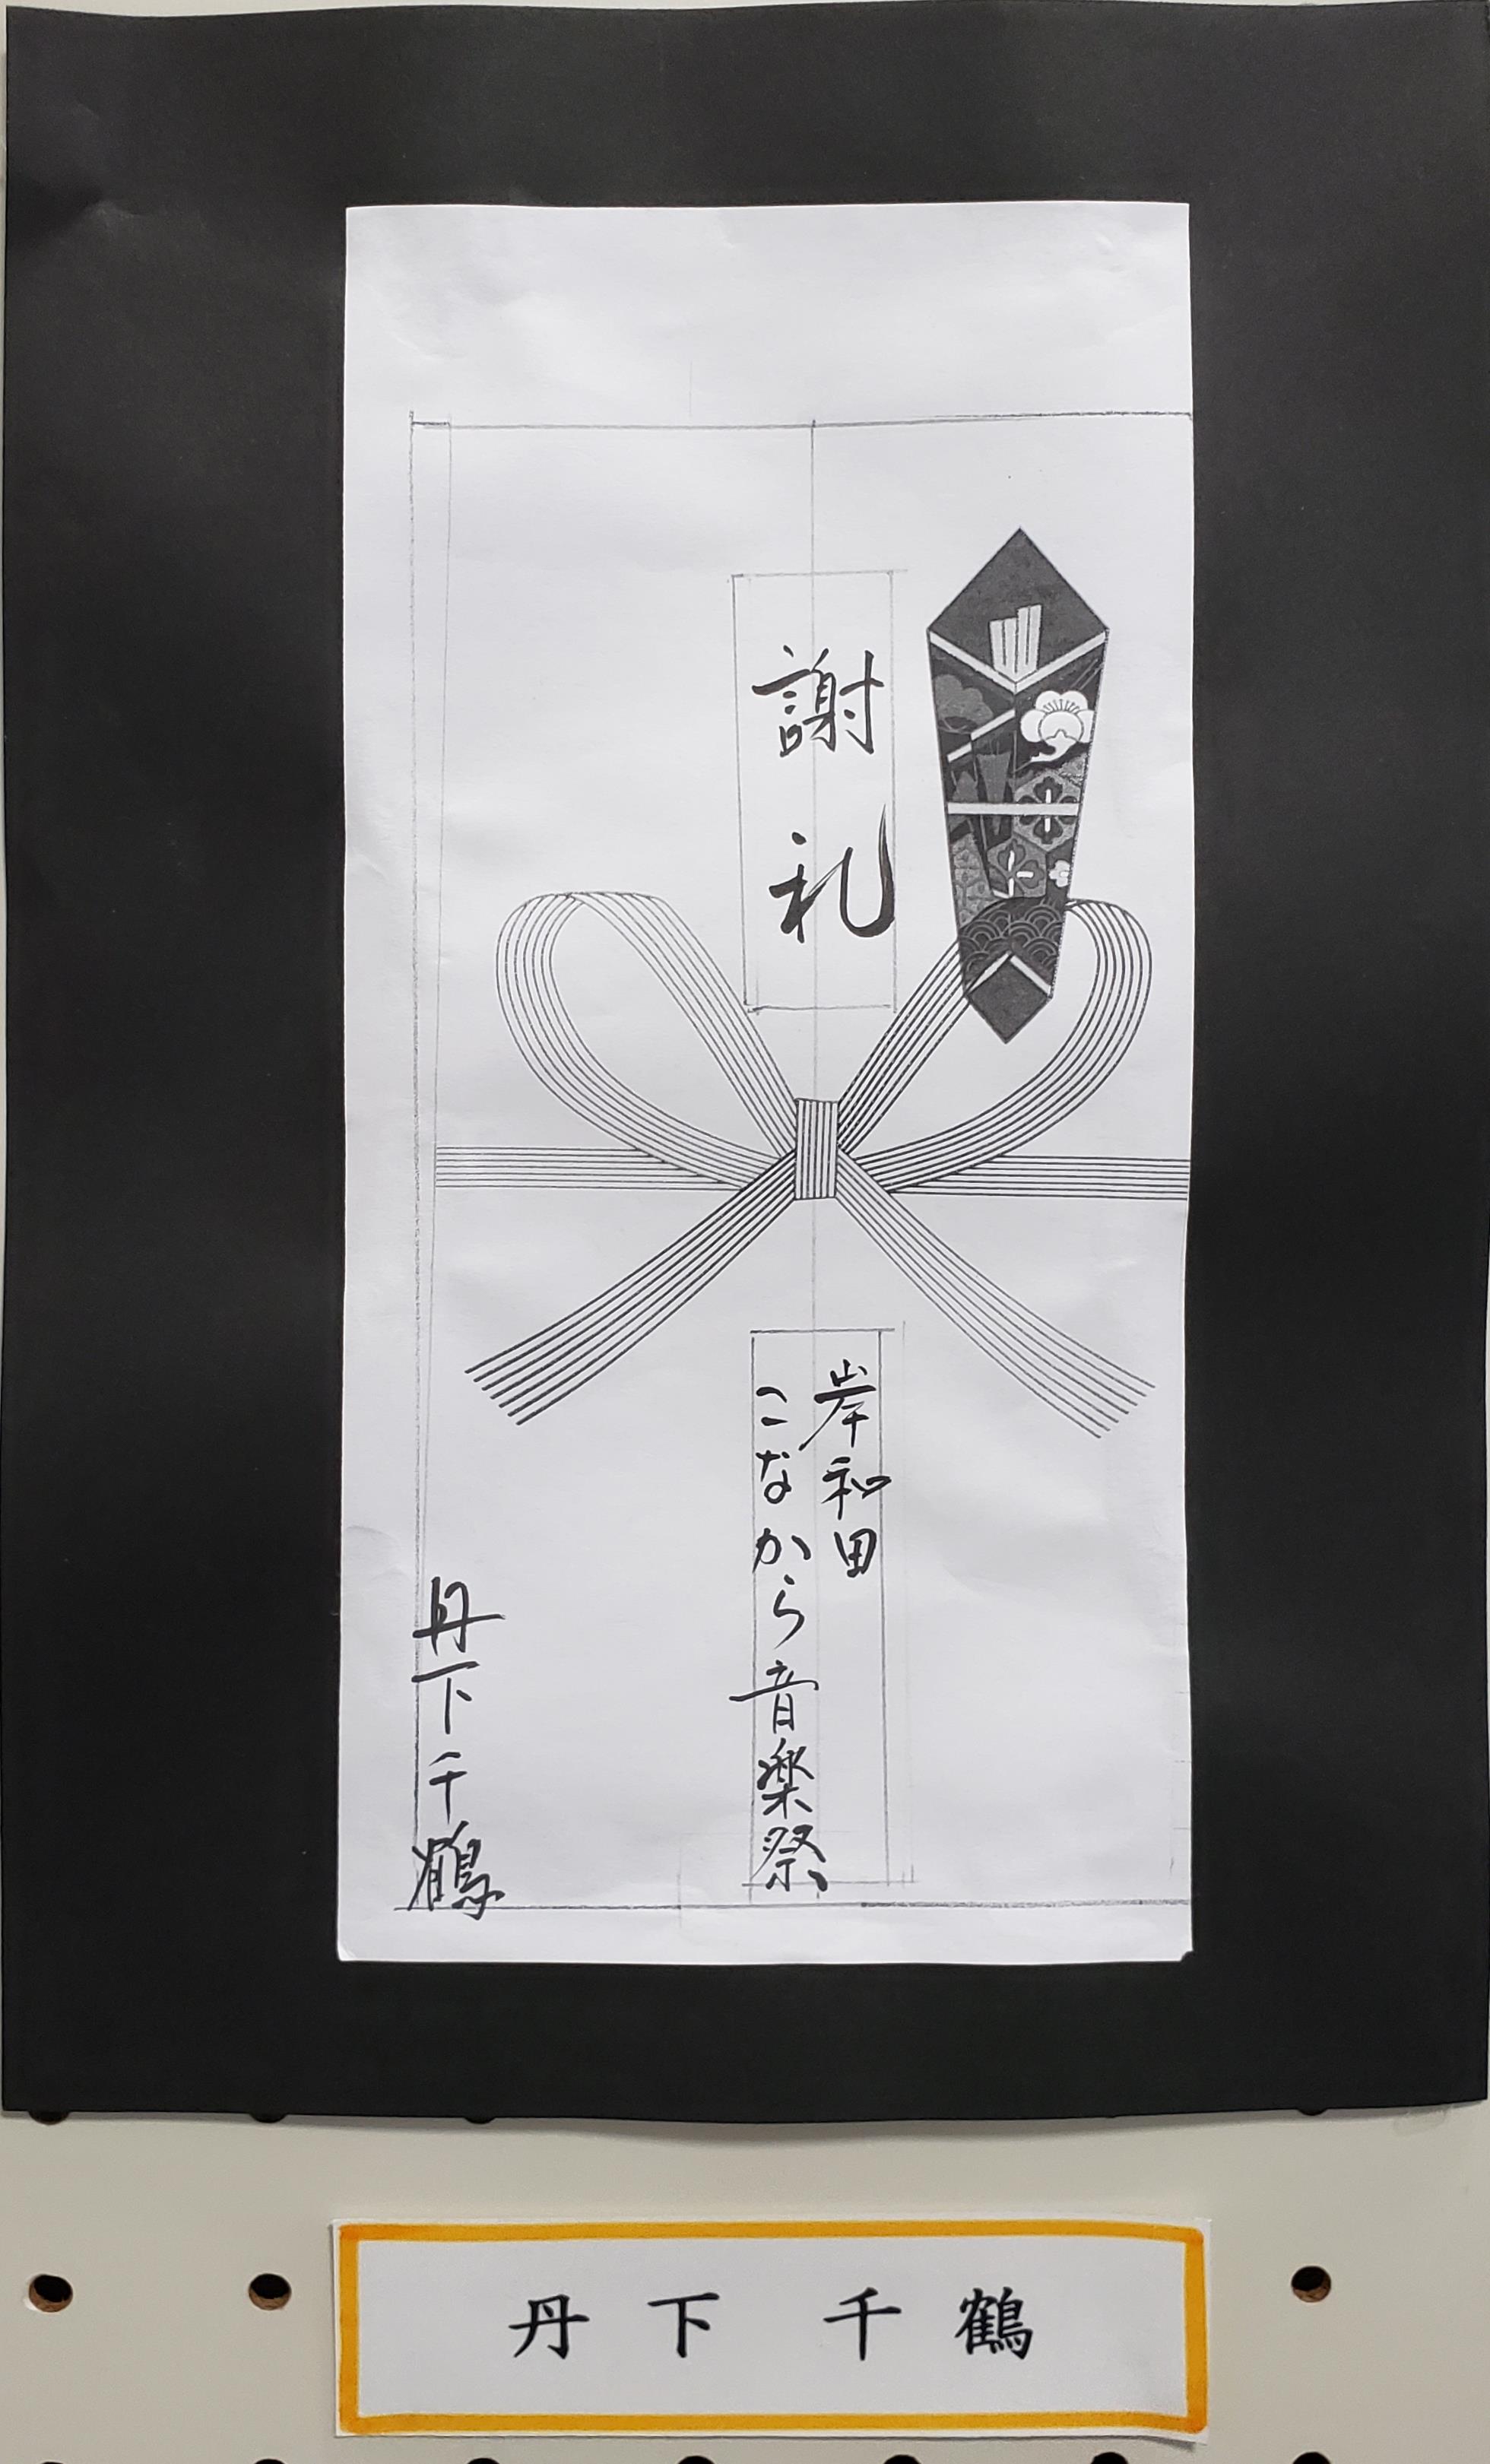 謝礼
岸和田
こなから音楽祭
丹下千鶴
丹下 千鶴